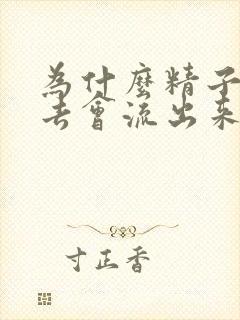 為什麼精子
去會流出來
寸正香